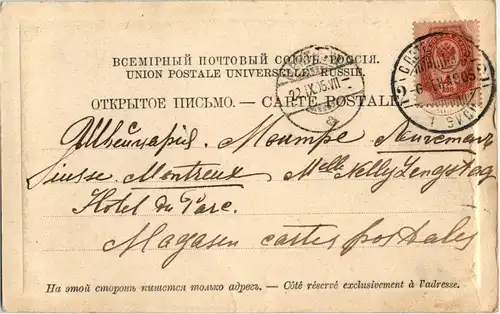 ВСЕМІРНЫЙ ПОЧТОВЫЙ СОЮЗЪ. РОССІЯ.
UNION POSTALE UNIVERSELLE. RUSSIE.
ОТКРЫТОЕ ПИСЬМО. — CARTE POSTALE
22.IX.05.VII
Швейцарія. Montpe. Лингстаг
Suisse. Montreux Melle Nelly Lengstag
Hotel du Parc.
Magasin cartes postales
На этой сторонѣ пишется только адресъ. — Côté réservé exclusivement à l'adresse.